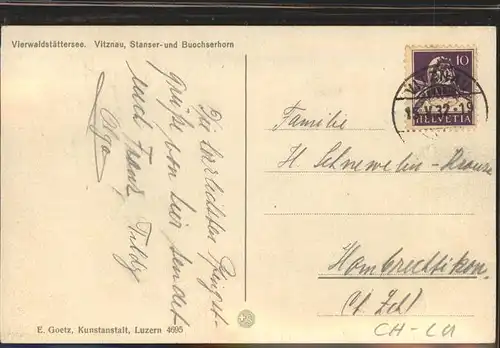 Vierwaldstättersee. Vitznau, Stanser- und Buochserhorn
Die herzlichsten Pfingst-
grüße von hier sendet
und Franz Tildy
Olga!
E. Goetz, Kunstanstalt, Luzern 4695
10
HELVETIA
Familie
H. Schnewelin-Krause
Hombrechtikon.
Ct. Zch)
CH-LU